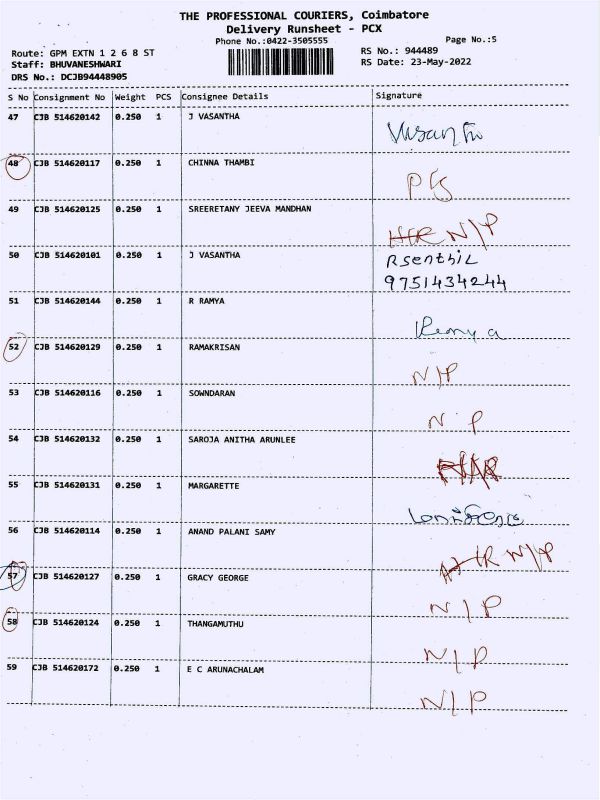 THE PROFESSIONAL COURIERS, Coimbatore
Delivery Runsheet - PCX
Phone No.:0422-3505555
Page No.:5
Route: GPM EXTN 1 2 6 8 ST
RS No.: 944489
Staff: BHUVANESHWARI
RS Date: 23-May-2022
DRS No.: DCJB94448905
S No Consignment No Weight PCS Consignee Details Signature
47 CJB 514620142 0.250 1 J VASANTHA
48 CJB 514620117 0.250 1 CHINNA THAMBI
49 CJB 514620125 0.250 1 SREERETANY JEEVA MANDHAN N/P
50 CJB 514620101 0.250 1 J VASANTHA Rsenthil
9751434244
51 CJB 514620144 0.250 1 R RAMYA Remya
52 CJB 514620129 0.250 1 RAMAKRISAN N/P
53 CJB 514620116 0.250 1 SOWNDARAN N P
54 CJB 514620132 0.250 1 SAROJA ANITHA ARUNLEE
55 CJB 514620131 0.250 1 MARGARETTE
56 CJB 514620114 0.250 1 ANAND PALANI SAMY N/P
57 CJB 514620127 0.250 1 GRACY GEORGE N/P
58 CJB 514620124 0.250 1 THANGAMUTHU N/P
59 CJB 514620172 0.250 1 E C ARUNACHALAM N/P